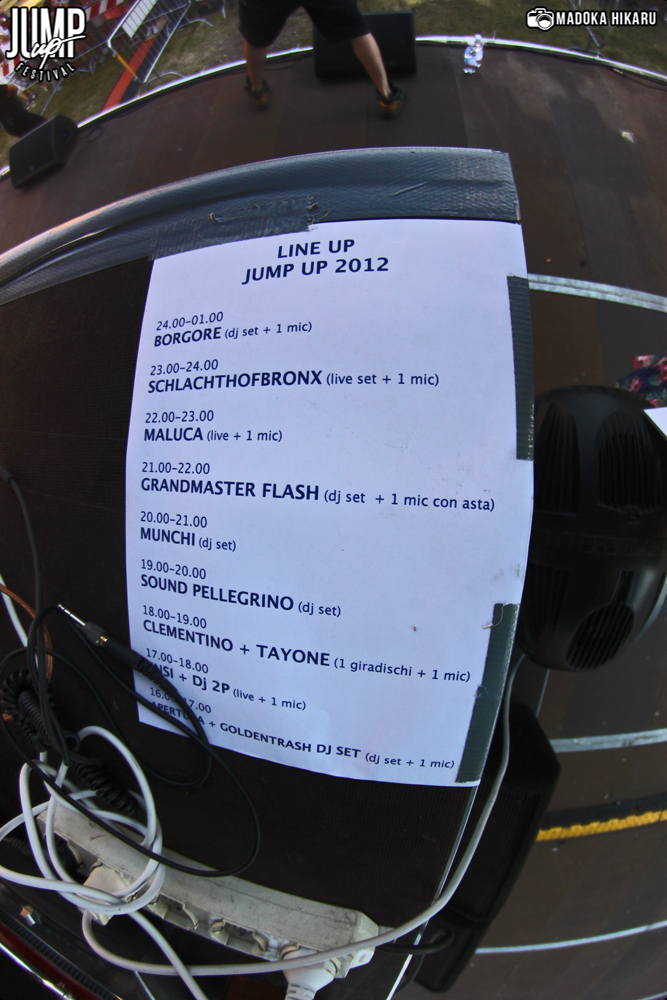 JUMP
up
FESTIVAL
MADOKA HIKARU
LINE UP
JUMP UP 2012
24.00-01.00
BORGORE (dj set + 1 mic)
23.00-24.00
SCHLACHTHOFBRONX (live set + 1 mic)
22.00-23.00
MALUCA (live + 1 mic)
21.00-22.00
GRANDMASTER FLASH (dj set + 1 mic con asta)
20.00-21.00
MUNCHI (dj set)
19.00-20.00
SOUND PELLEGRINO (dj set)
18.00-19.00
CLEMENTINO + TAYONE (1 giradischi + 1 mic)
17.00-18.00
+ Dj 2P (live + 1 mic)
+ GOLDENTRASH DJ SET (dj set + 1 mic)